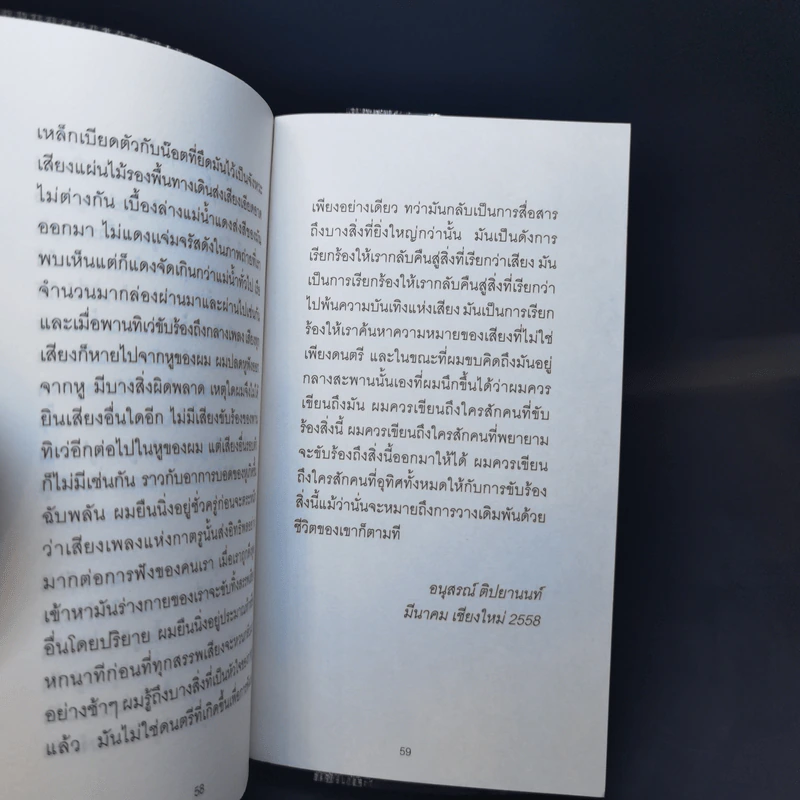 เหล็กเบียดตัวกับน๊อตที่ยึดมันไว้เป็นจังหวะ
เสียงแผ่นไม้รองพื้นทางเดินส่งเสียงเอียดอาด
ไม่ต่างกัน เบื้องล่างแม่น้ำแดงส่งสีของมัน
ออกมา ไม่แดงแจ่มจรัสดังในภาพถ่ายที่เรา
พบเห็นแต่ก็แดงจัดเกินกว่าแม่น้ำทั่วไป เรือ
จำนวนมากล่องผ่านมาและผ่านไปเช่นกัน
และเมื่อพานทิเว่ขับร้องถึงกลางเพลง เสียงทุก
เสียงก็หายไปจากหูของผม ผมปลดหูฟังออก
จากหู มีบางสิ่งผิดพลาด เหตุใดผมจึงไม่ได้
ยินเสียงอื่นใดอีก ไม่มีเสียงขับร้องของพาน
ทิเว่อีกต่อไปในหูของผม แต่เสียงอื่นรอบตัว
ก็ไม่มีเช่นกัน ราวกับอาการบอดของหูเกิดขึ้น
ฉับพลัน ผมยืนนิ่งอยู่ชั่วครู่ก่อนจะตระหนัก
ว่าเสียงเพลงแห่งกาตรูนั้นส่งอิทธิพลอย่าง
มากต่อการฟังของคนเรา เมื่อเราถูก
เข้าหามันร่างกายของเราจะขับทิ้งสรรพเสียง
อื่นโดยปริยาย ผมยืนนิ่งอยู่ประมาณห้าหรือ
หกนาทีก่อนที่ทุกสรรพเสียงจะหวนกลับมา
อย่างช้าๆ ผมรู้ถึงบางสิ่งที่เป็นหัวใจของ
แล้ว มันไม่ใช่ดนตรีที่เกิดขึ้นเพื่อการฟัง
58
เพียงอย่างเดียว ทว่ามันกลับเป็นการสื่อสาร
ถึงบางสิ่งที่ยิ่งใหญ่กว่านั้น มันเป็นดังการ
เรียกร้องให้เรากลับคืนสู่สิ่งที่เรียกว่าเสียง มัน
เป็นการเรียกร้องให้เรากลับคืนสู่สิ่งที่เรียกว่า
ไปพ้นความบันเทิงแห่งเสียง มันเป็นการเรียก
ร้องให้เราค้นหาความหมายของเสียงที่ไม่ใช่
เพียงดนตรี และในขณะที่ผมขบคิดถึงมันอยู่
กลางสะพานนั้นเองที่ผมนึกขึ้นได้ว่าผมควร
เขียนถึงมัน ผมควรเขียนถึงใครสักคนที่ขับ
ร้องสิ่งนี้ ผมควรเขียนถึงใครสักคนที่พยายาม
จะขับร้องถึงสิ่งนี้ออกมาให้ได้ ผมควรเขียน
ถึงใครสักคนที่อุทิศทั้งหมดให้กับการขับร้อง
สิ่งนี้แม้ว่านั่นจะหมายถึงการวางเดิมพันด้วย
ชีวิตของเขาก็ตามที
อนุสรณ์ ติปยานนท์
มีนาคม เชียงใหม่ 2558
59